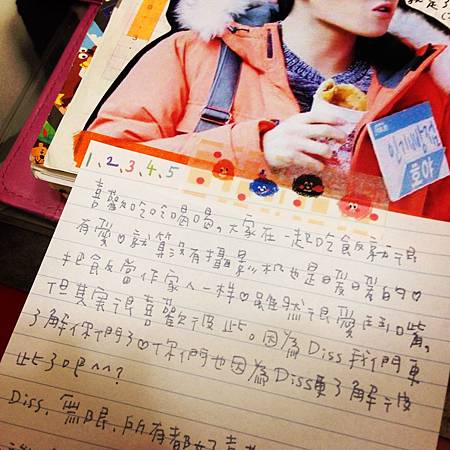 호야
1、2、3、4、5
喜歡吃吃喝喝。大家在一起吃飯就很
有愛♡就算沒有攝影机也是暖暖的♡
把飯當作家人一樣♡雖然很愛鬥嘴。
但其實很喜歡彼此。因為Diss我們更
了解你們了♡你們也因為Diss更了解彼
此了吧^^?
Diss. 無限.所有都好